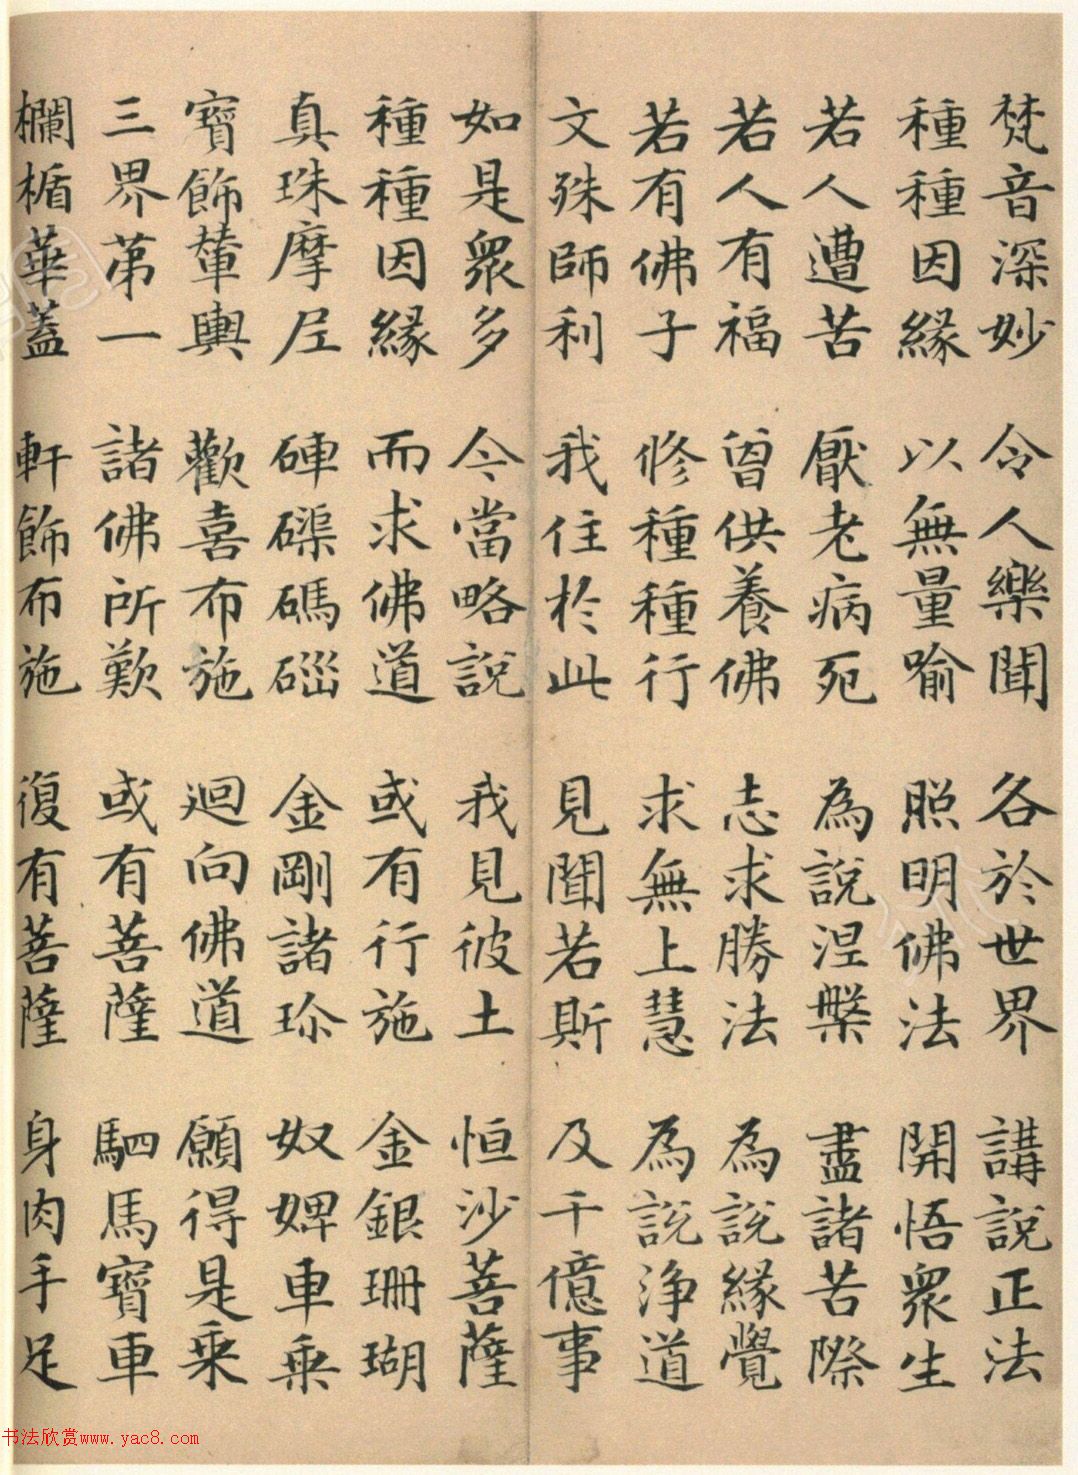 梵音深妙 令人樂聞 各於世界 講說正法
種種因緣 以無量喻 照明佛法 開悟眾生
若人遭苦 厭老病死 為說涅槃 盡諸苦際
若人有福 曾供養佛 志求勝法 為說緣覺
若有佛子 修種種行 求無上慧 為說淨道
文殊師利 我住於此 見聞若斯 及千億事
如是眾多 今當略說 我見彼土 恒沙菩薩
種種因緣 而求佛道 或有行施 金銀珊瑚
真珠摩尼 硨磲碼碯 金剛諸珍 奴婢車乘
寶飾輦輿 歡喜布施 迴向佛道 願得是乘
三界第一 諸佛所歎 或有菩薩 駟馬寶車
欄楯華蓋 軒飾布施 復有菩薩 身肉手足
书法欣赏www.yac8.com